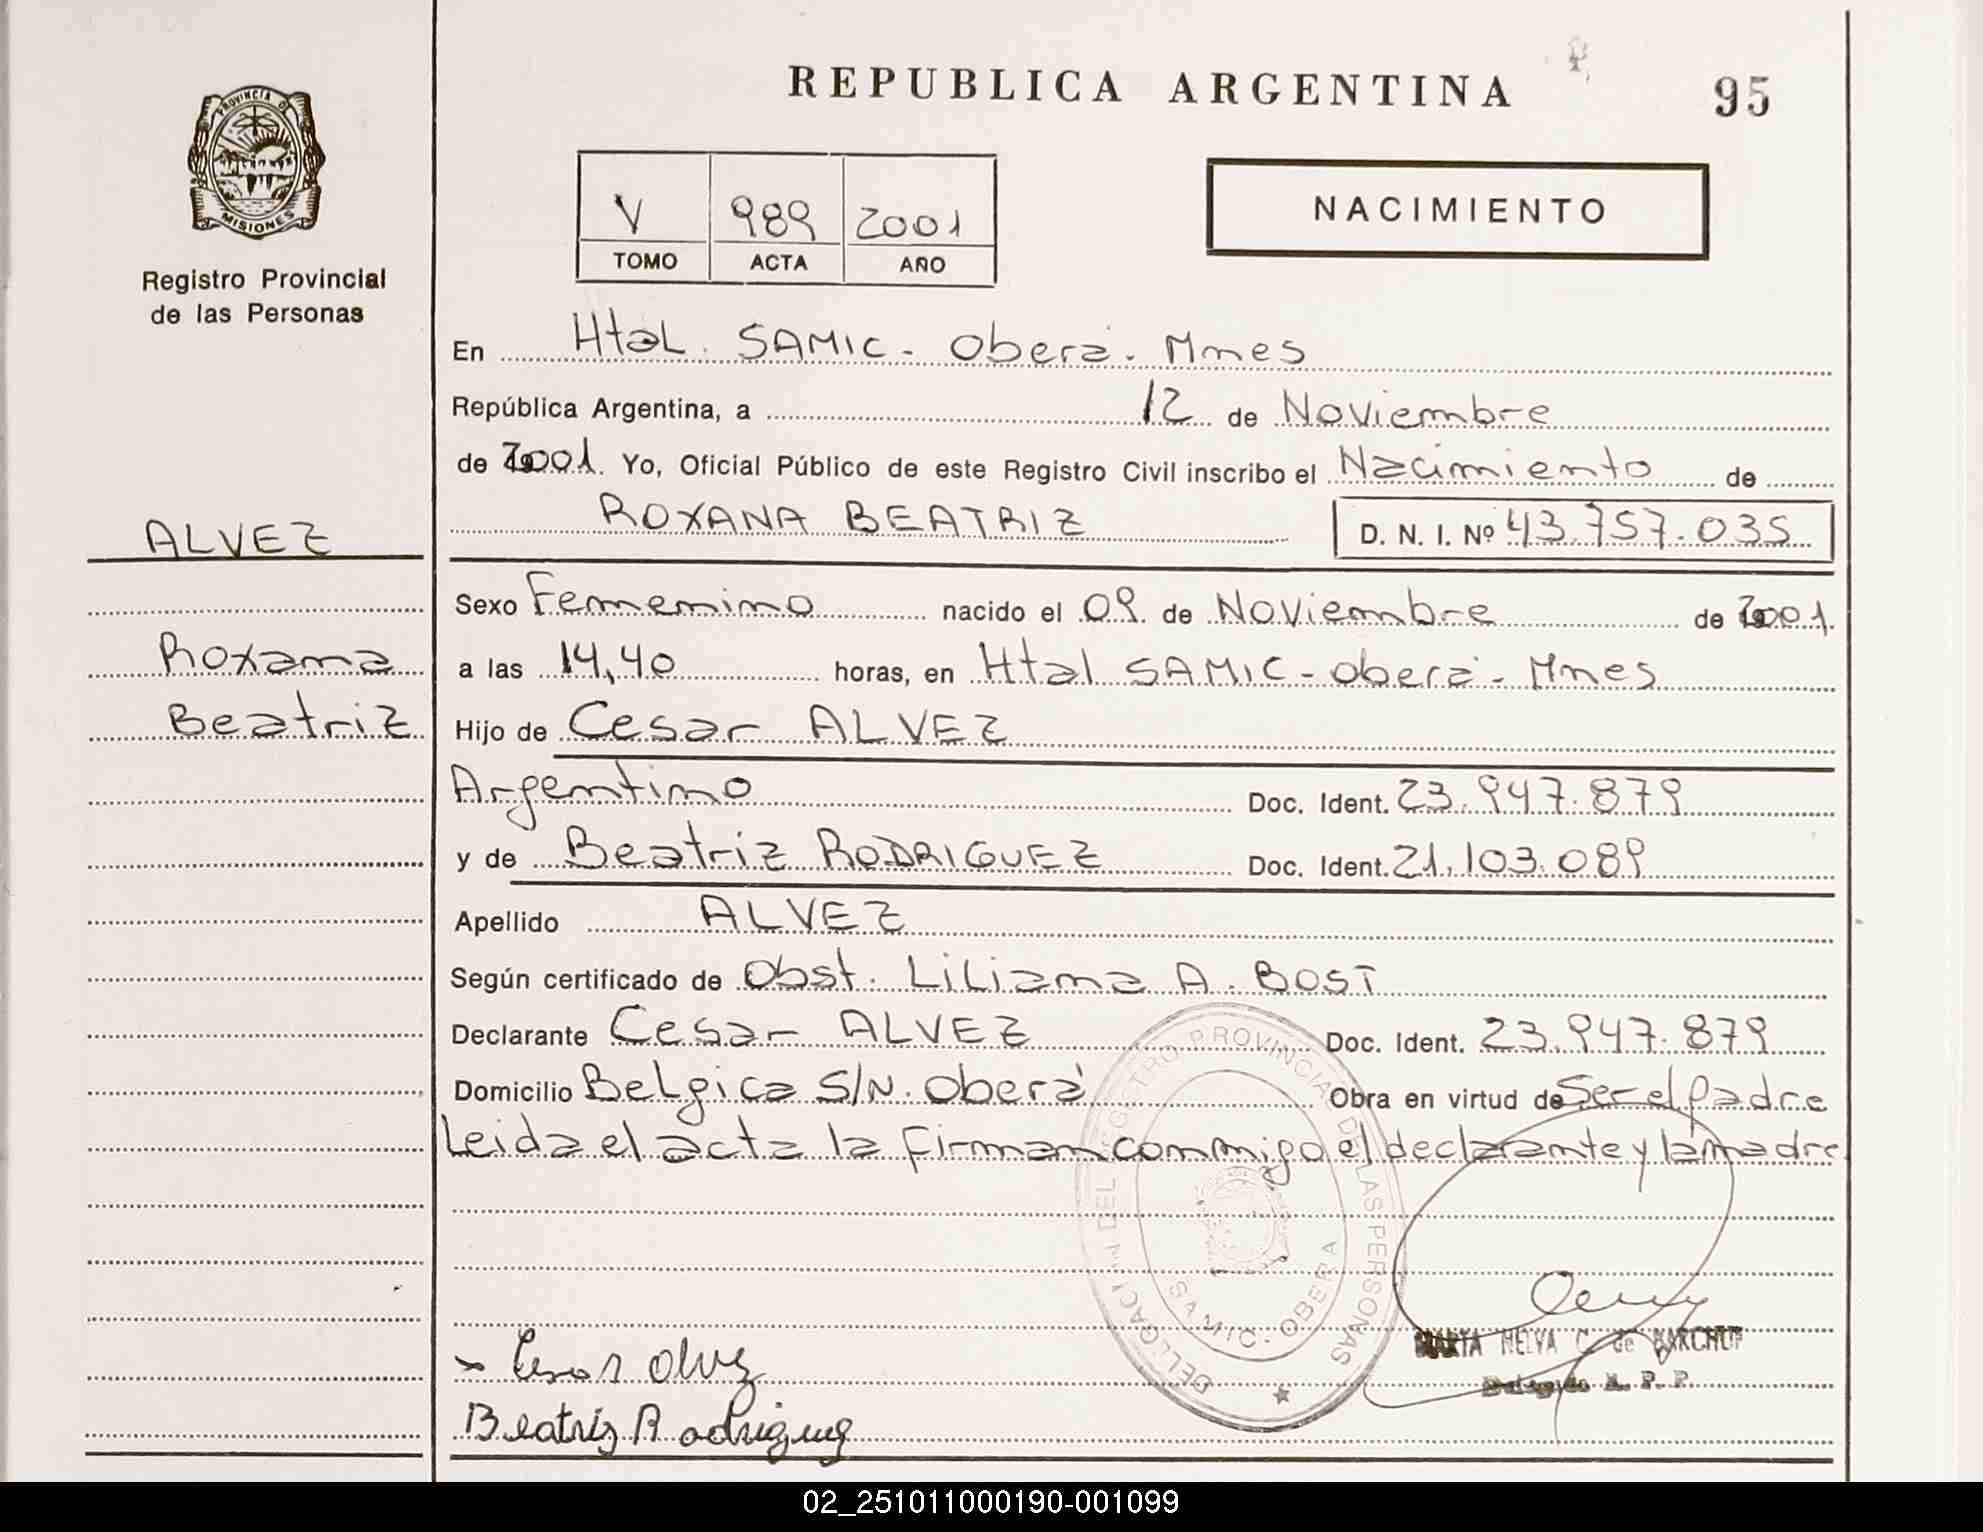 REPUBLICA ARGENTINA
95
PROVINCIA D
MISIONES
Registro Provincial
de las Personas
V 989 2001
TOMO ACTA AÑO
NACIMIENTO
En Htal. SAMIC - Oberá - Mnes
República Argentina, a 12 de Noviembre
de 2001. Yo, Oficial Público de este Registro Civil inscribo el Nacimiento de
ROXANA BEATRIZ D. N. I. Nº 43.757.035
ALVEZ
Roxana
Beatriz
Sexo Femenino nacido el 09 de Noviembre de 2001.
a las 14,40 horas, en Htal SAMIC - Oberá - Mnes
Hijo de Cesar ALVEZ
Argentino Doc. Ident. 23.947.879
y de Beatriz RODRIGUEZ Doc. Ident. 21.103.089
Apellido ALVEZ
Según certificado de Obst. Liliana A. BOST
Declarante Cesar ALVEZ Doc. Ident. 23.947.879
Domicilio Belgica S/N. Oberá Obra en virtud de Ser el padre
Leida el acta la firman conmigo el declarante y la madre
REGISTRO PROVINCIAL DE LAS PERSONAS
SAMIC - OBERA
MARTA NELVA C. de
R. P. P.
Cesar Alvez
Beatriz Rodriguez
02_251011000190-001099